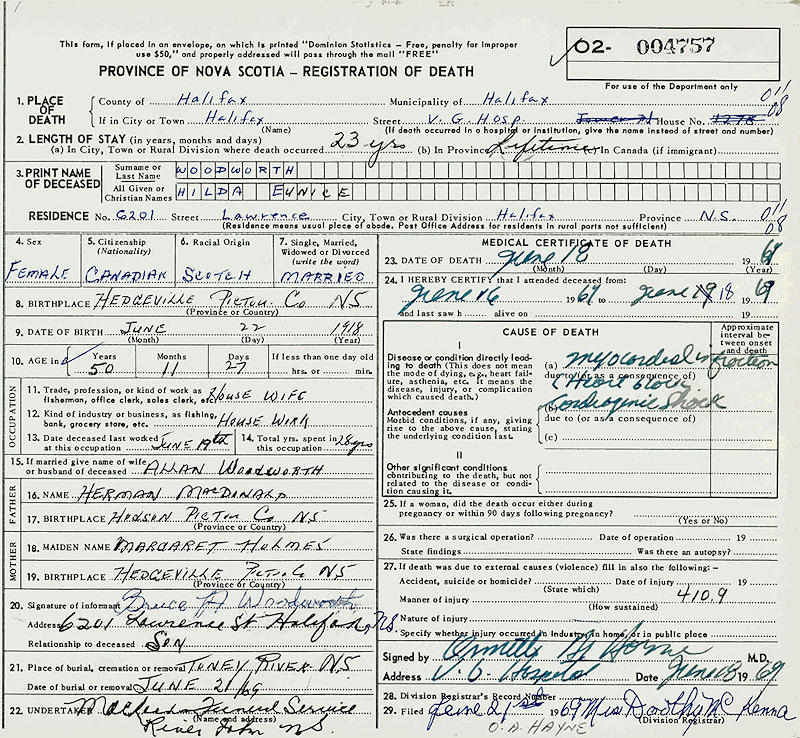 This form, if placed in an envelope, on which is printed "Dominion Statistics – Free, penalty for improper
use $50," and properly addressed will pass through the mail "FREE"
PROVINCE OF NOVA SCOTIA – REGISTRATION OF DEATH
02- 004757
For use of the Department only
1. PLACE OF DEATH
County of Halifax Municipality of Halifax 011
08
If in City or Town Halifax Street V. G. Hosp. House No. 1278
(Name) (If death occurred in a hospital or institution, give the name instead of street and number)
2. LENGTH OF STAY (in years, months and days)
(a) In City, Town or Rural Division where death occurred 23 yrs (b) In Province Lifetime (c) In Canada (if immigrant)
3. PRINT NAME OF DECEASED
Surname or Last Name WOODWORTH
All Given or Christian Names HILDA EUNICE
RESIDENCE No. 6201 Street Lawrence City, Town or Rural Division Halifax Province N.S. 011
08
(Residence means usual place of abode. Post Office Address for residents in rural parts not sufficient)
4. Sex
FEMALE
5. Citizenship
(Nationality)
CANADIAN
6. Racial Origin
SCOTCH
7. Single, Married,
Widowed or Divorced
(write the word)
MARRIED
8. BIRTHPLACE HEDGEVILLE PICTOU CO NS
(Province or Country)
9. DATE OF BIRTH JUNE 22 1918
(Month) (Day) (Year)
10. AGE in
Years 50
Months 11
Days 27
If less than one day old
hrs. or min.
OCCUPATION
11. Trade, profession, or kind of work as
fisherman, office clerk, sales clerk, etc. HOUSE WIFE
12. Kind of industry or business, as fishing,
bank, grocery store, etc. HOUSE WORK
13. Date deceased last worked
at this occupation JUNE 19th
14. Total yrs. spent in
this occupation 28 yrs
15. If married give name of wife
or husband of deceased ALLAN WOODWORTH
FATHER
16. NAME HERMAN MACDONALD
17. BIRTHPLACE HODSON PICTOU CO NS
(Province or Country)
MOTHER
18. MAIDEN NAME MARGARET HOLMES
19. BIRTHPLACE HEDGEVILLE PICTOU CO NS
(Province or Country)
20. Signature of informant Bruce A Woodworth
Address 6201 Lawrence St Halifax, N.S.
Relationship to deceased SON
21. Place of burial, cremation or removal TONEY RIVER NS
Date of burial or removal JUNE 21/69
22. UNDERTAKER Funeral Service
(Name and address)
River John NS.
MEDICAL CERTIFICATE OF DEATH
23. DATE OF DEATH June 18 1969
(Month) (Day) (Year)
24. I HEREBY CERTIFY that I attended deceased from:
June 16 1969 to June 18 1969
and last saw h alive on 19
CAUSE OF DEATH
Approximate
interval be-
tween onset
and death
I
Disease or condition directly lead-
ing to death (This does not mean
the mode of dying, e.g., heart failure,
asthenia, etc. It means the
disease, injury, or complication
which caused death.)
(a) myocardial infarction
due to (or as a consequence of)
(Heart block
Antecedent causes
Morbid conditions, if any, giving
rise to the above cause, stating
the underlying condition last.
(b) Cardiogenic shock
due to (or as a consequence of)
(c)
II
Other significant conditions
contributing to the death, but not
related to the disease or condi-
tion causing it.
25. If a woman, did the death occur either during
pregnancy or within 90 days following pregnancy?
(Yes or No)
26. Was there a surgical operation? Date of operation 19
State findings Was there an autopsy?
27. If death was due to external causes (violence) fill in also the following:–
Accident, suicide or homicide? Date of injury 19
(State which)
Manner of injury 410.9
(How sustained)
Nature of injury
Specify whether injury occurred in industry, in home, or in public place
Signed by M.D.
Address V. G. Hospital Date June 18 1969
28. Division Registrar's Record Number
29. Filed June 21st 1969 Miss Dorothy McKenna
(Division Registrar)
O. A. HAYNE